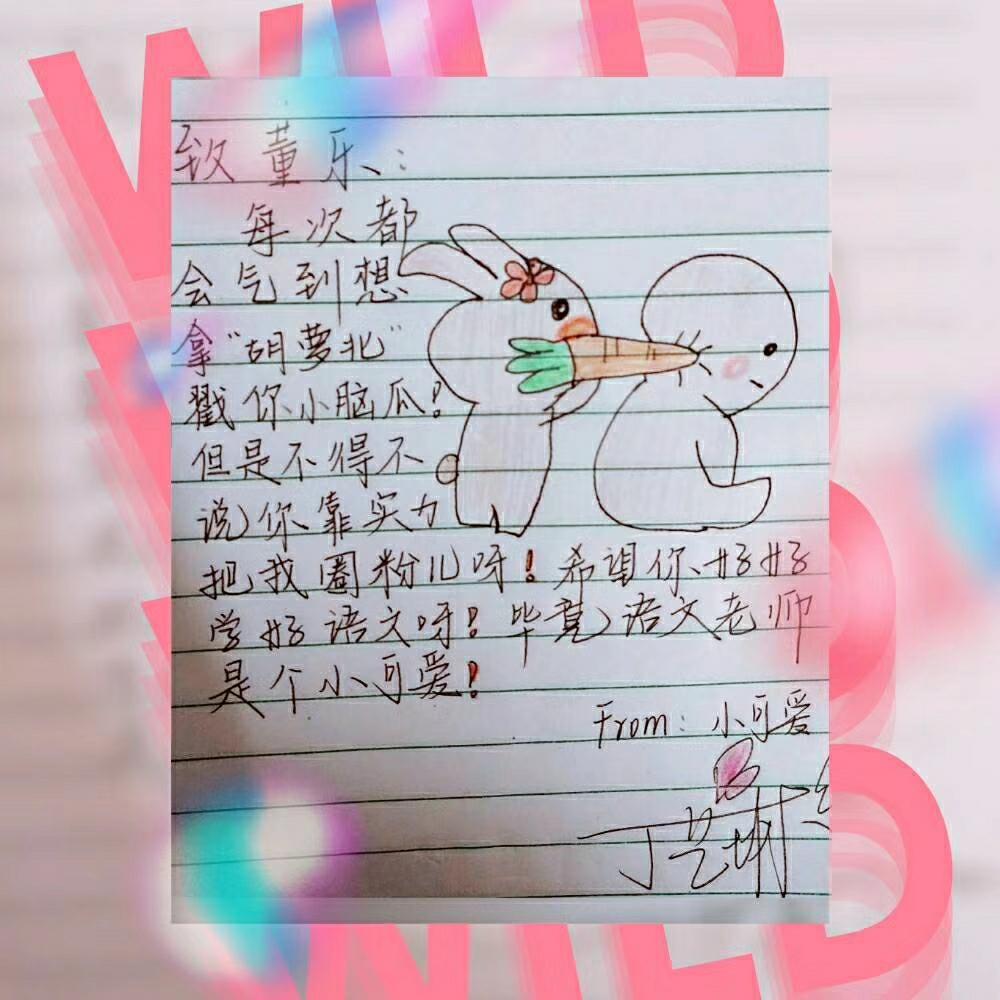 WILD
致董乐：
每次都
会气到想
拿“胡萝北”
戳你小脑瓜！
但是不得不
说你靠实力
把我圈粉儿呀！希望你好好
学好语文呀！毕竟语文老师
是个小可爱！
From：小可爱
WILD